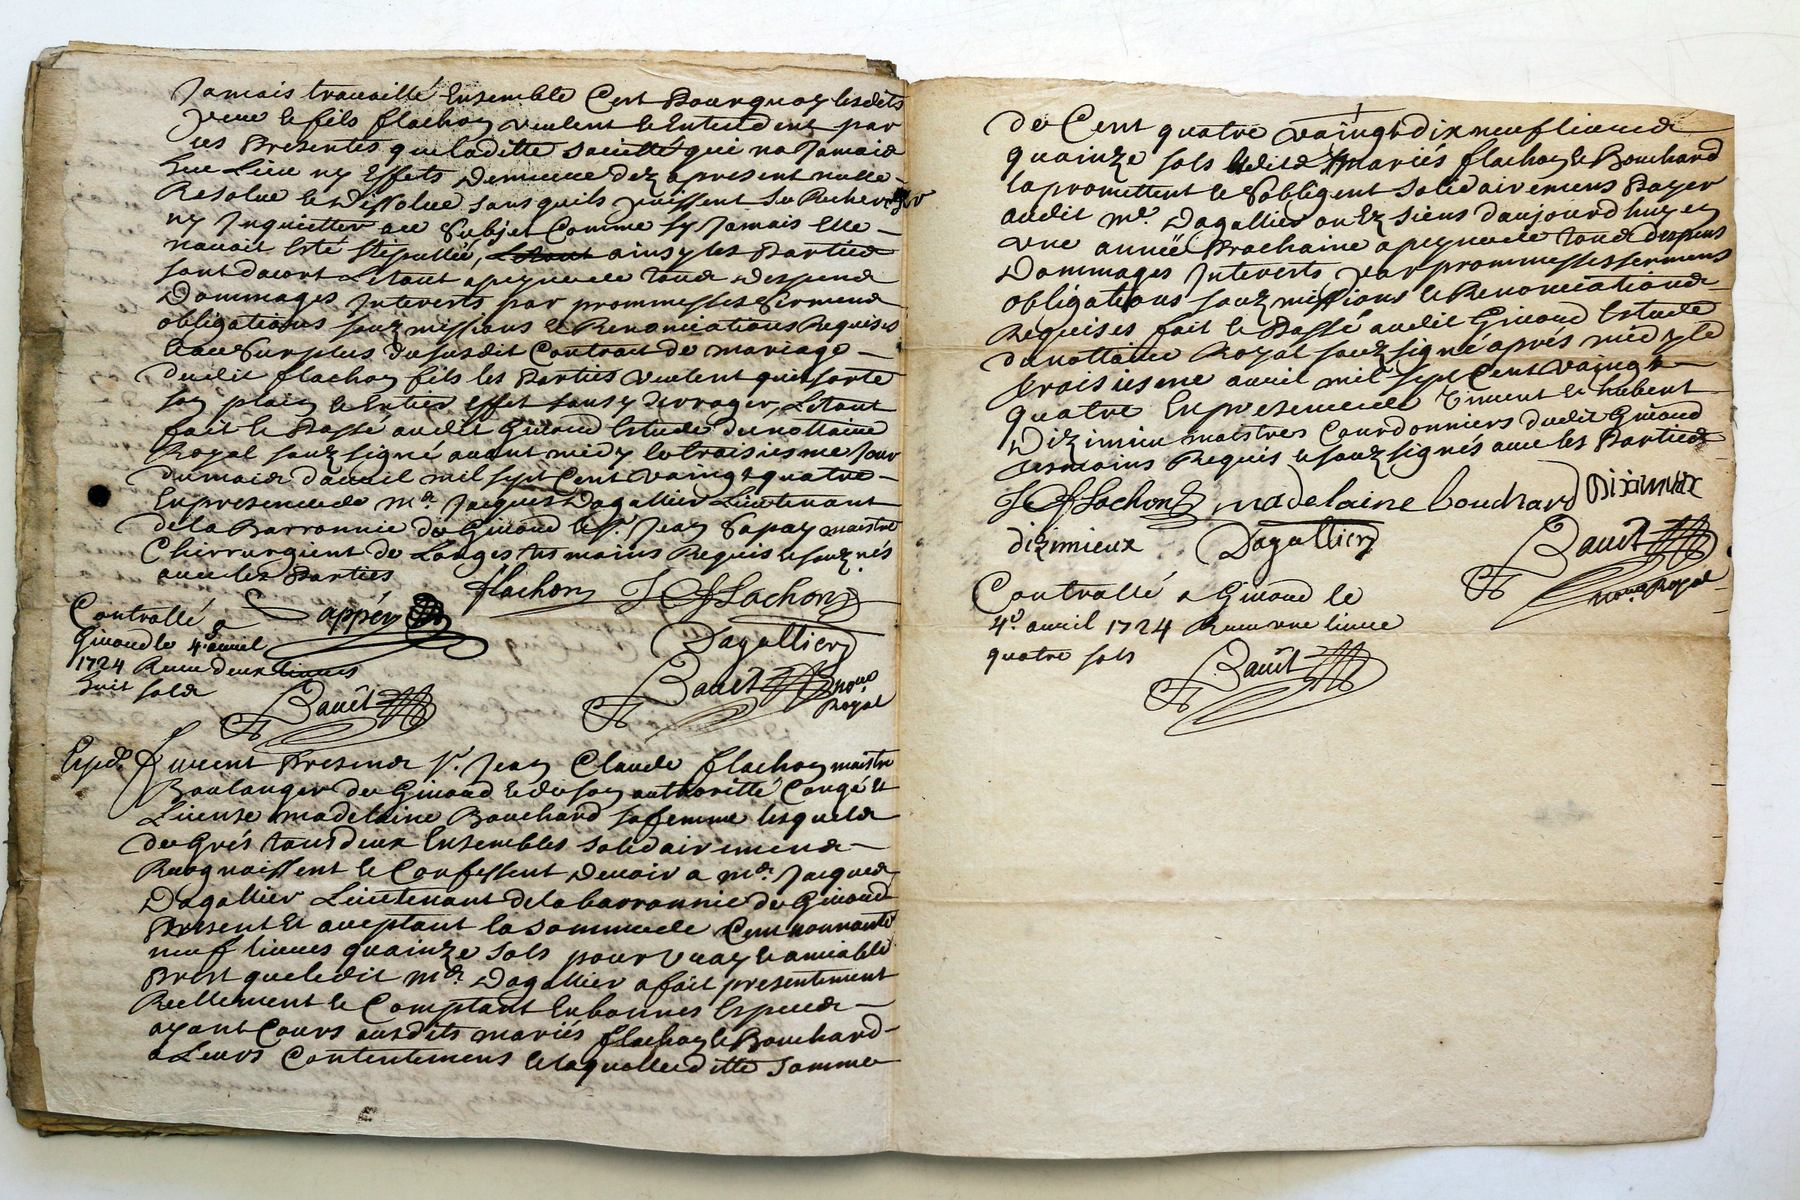 Jamais travaillé Ensemble C'est Pourquoy lesdits
pere & fils flachon veulent & Entendent par
ces Presentes que laditte societté qui na Jamais
Eue Lieu ny Effets Demeure dez apresent nulle
Resolue & Dissolue sans quils puissent se Rechercher
ny Inquietter au Subjet Comme sy Jamais Elle
navait Esté stipullée, ainsy les Parties
sont dacort Letout apeyne de tous despens
Dommages Interests par prommesses serments
obligations souzmissions & Renonciations Requises
& au Surplus du susdit Contrait de mariage
dudit flachon fils les Parties veulent quil sorte
son plain & Entier effet sans y derroger, Letout
fait & Passé audit Givord Estude du nottaire
Royal souzsigné avant midy le troisiesme Jour
du mois d'avril mil sept Cent vaingt quatre
En presence de Mr. Jacques Dagallier Lieutenant
de la Barronnie de Givord & Sr. Jean Sapay maistre
Chirrurgient de Longes tesmoins Requis & souz.nés
avec les Parties
flachon J C flachon
Controllé a Sappey
Givord le 4e. avril Dagallier
1724 Receu deux livres
huit sols Bauët Bauët nore Royal
Exped. Furent Presents Sr. Jean Claude flachon maistre
Boulanger de Givord & de son authoritté Congé Et
License madelaine Bouchard sa femme lesquels
de Grés tous deux Ensembles solidairement
Recognoissent & Confessent Devoir a Mr. Jacques
Dagallier Lieutenant de la barronnie de Givord
Present Et aceptant la somme de Cent nonnante
neuf livres quainze sols pour vray & amiable
Prest que ledit Mr. Dagallier a fait presentement
Reellement & Comptant En bonnes Especes
ayant Cours ausdits mariés flachon & Bouchard
a Leurs Contentement & laquelle ditte somme
de Cent quatre vaingt dix neuf livres
quainze sols lesdits mariés flachon & Bouchard
la promettent & s'obligent solidairement Payer
audit Mr. Dagallier ou Ez siens d'aujourd'huy en
une année Prochaine apeyne de tous despens
Dommages Interests par prommesses serments
obligations souzmissions & Renonciations
Requises fait & Passé audit Givord Estude
du nottaire Royal souzsigné aprés midy le
troisiesme avril mil sept Cent vaingt
quatre En presence de Timent & hubert
Dizimieu maistres Courdonniers dudit Givord
tesmoins Requis & souzsignés avec les Parties
J C flachon madelaine bouchard Diximieux
dizimieux Dagallier Bauët
nore Royal
Controllé a Givord le
4e. avril 1724 Receu une livre
quatre sols
Bauët